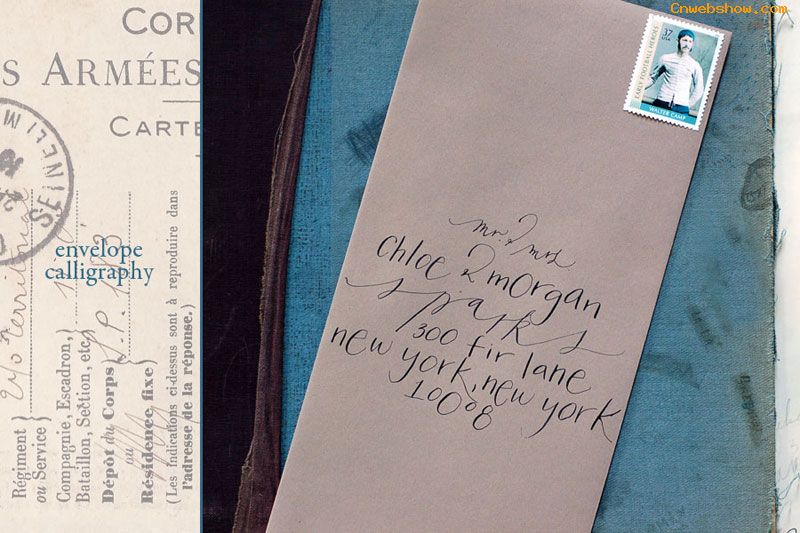 Cnwebshow.com
COR
S ARMÉES
CARTE
SEINELIM
envelope
calligraphy
Régiment
ou Service)
Compagnie, Escadron,
Bataillon, Section, etc.
Dépôt du Corps
ou
Résidence fixe
(Les indications ci-dessus sont à reproduire dans
l'adresse de la réponse.)
37
USA
EARLY FOOTBALL HEROES
WALTER CAMP
mr. & mrs
chloe & morgan
sparks
300 fir lane
new york, new york
10008